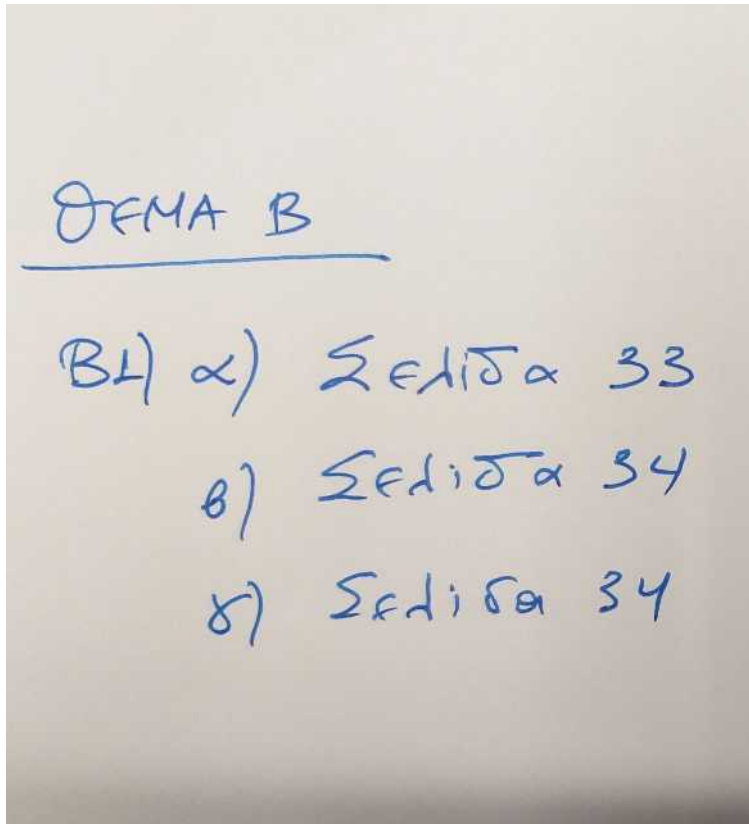 ΘΕΜΑ Β
Β1) α) Σελίδα 33
β) Σελίδα 34
γ) Σελίδα 34